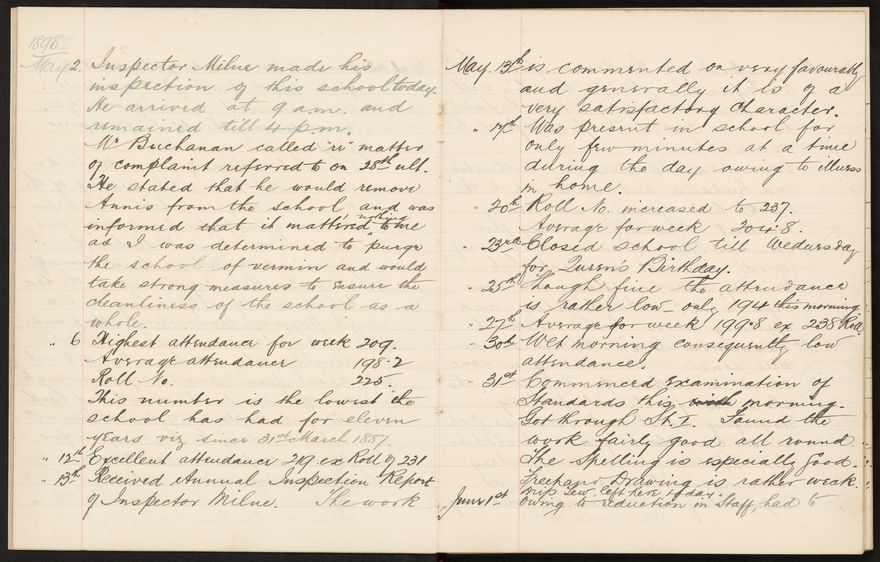 1898
May 2. Inspector Milne made his
inspection of this school today.
He arrived at 9 a.m. and
remained till 4 p.m.
Mr Buchanan called 're' matter
of complaint referred to on 28th ult.
He stated that he would remove
Annis from the school and was
informed that it mattered nothing to me
as I was determined to purge
the school of vermin and would
take strong measures to ensure the
cleanliness of the school as a
whole.
" 6 Highest attendance for week 209.
Average attendance 198.2
Roll No. 225.
This number is the lowest the
school has had for eleven
years viz since 31st March 1887.
" 12th Excellent attendance 219 ex Roll of 231
" 13th Received Annual Inspection Report
of Inspector Milne. The work
May. 13th is commented on very favourably
and generally it is of a
very satisfactory character.
" 17th Was present in school for
only few minutes at a time
during the day owing to illness
in home.
" 20th Roll No. increased to 237.
Average for week 204.8.
" 23rd Closed school till Wednesday
for Queen's Birthday.
" 25th Though fine the attendance
is rather low - only 194 this morning
" 27th Average for week 199.8 ex 238 Roll.
" 30th Wet morning consequently low
attendance.
" 31st Commenced Examination of
Standards this morning.
Got through St. I. Found the
work fairly good all round.
The Spelling is especially good.
Freehand Drawing is rather weak.
June 1st Miss Lew left here today.
owing to reduction in Staff, had to